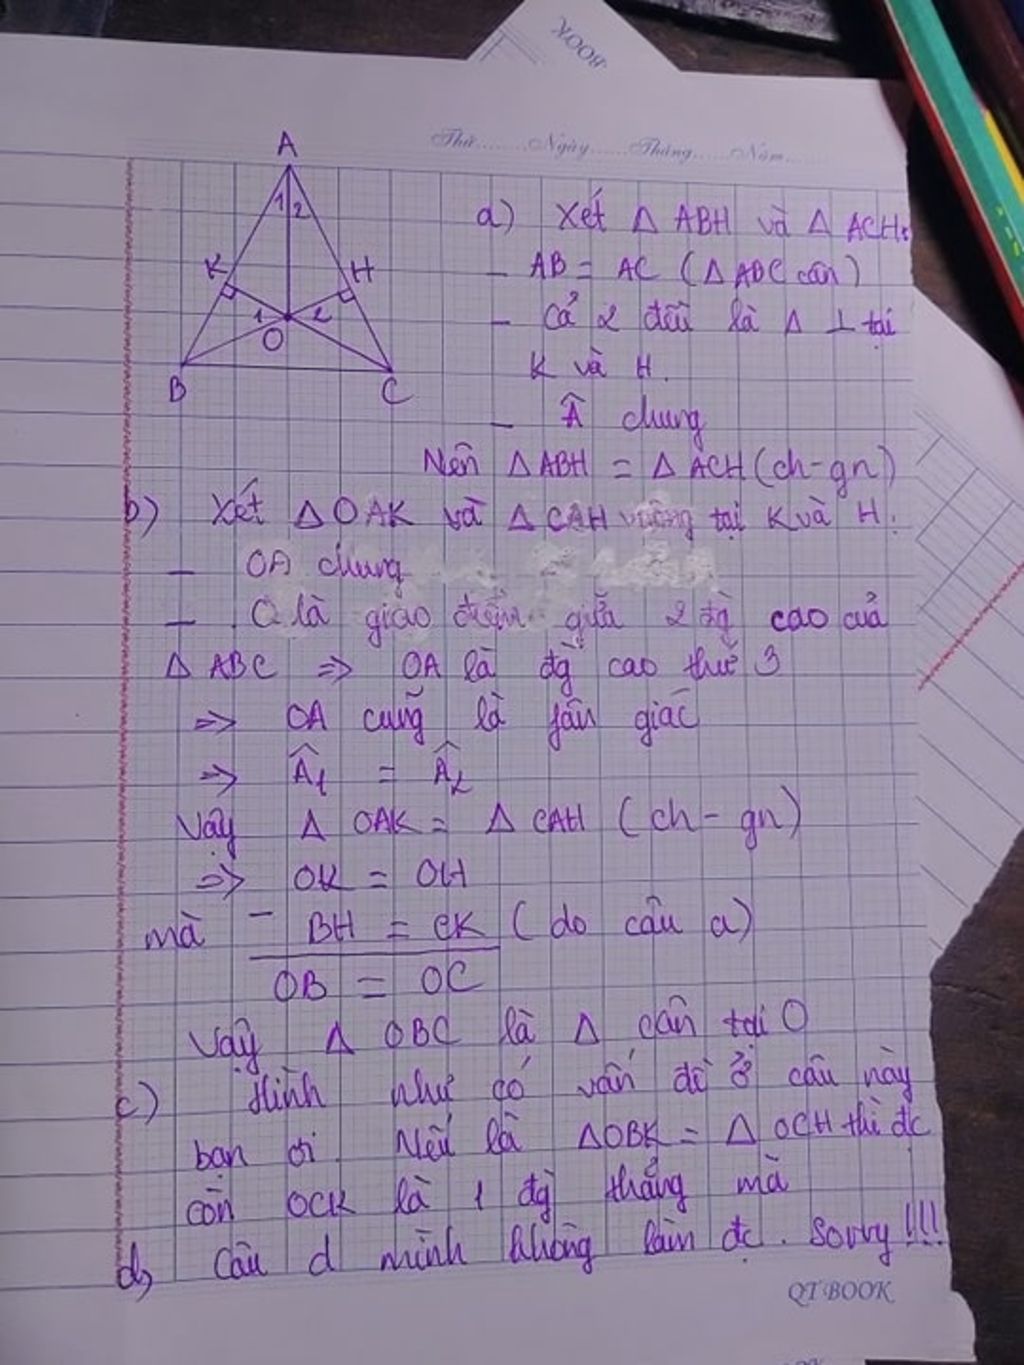 BOOK
Thứ........Ngày......Tháng......Năm......
A
1 2
K H
1 2
O
B C
a) Xét Δ ABH và Δ ACH:
- AB = AC (Δ ABC cân)
- Cả 2 đều là Δ ⊥ tại
K và H.
- Â chung
Nên Δ ABH = Δ ACH (ch-gn)
b) Xét Δ OAK và Δ CAH vuông tại K và H.
- OA chung
- O là giao điểm giữa 2 đg cao của
Δ ABC => OA là đg cao thứ 3
=> OA cũng là fân giác
=> Â₁ = Â₂
Vậy Δ OAK = Δ CAH (ch-gn)
=> OK = OH
mà - BH = CK (do câu a)
OB = OC
Vậy Δ OBC là Δ cân tại O
c) Hình như có vấn đề ở câu này
bạn ơi. Nếu là ΔOBK = Δ OCH thì đc
còn OCK là 1 đg thẳng mà
d) Câu d mình không làm đc. Sorry!!!
QT BOOK